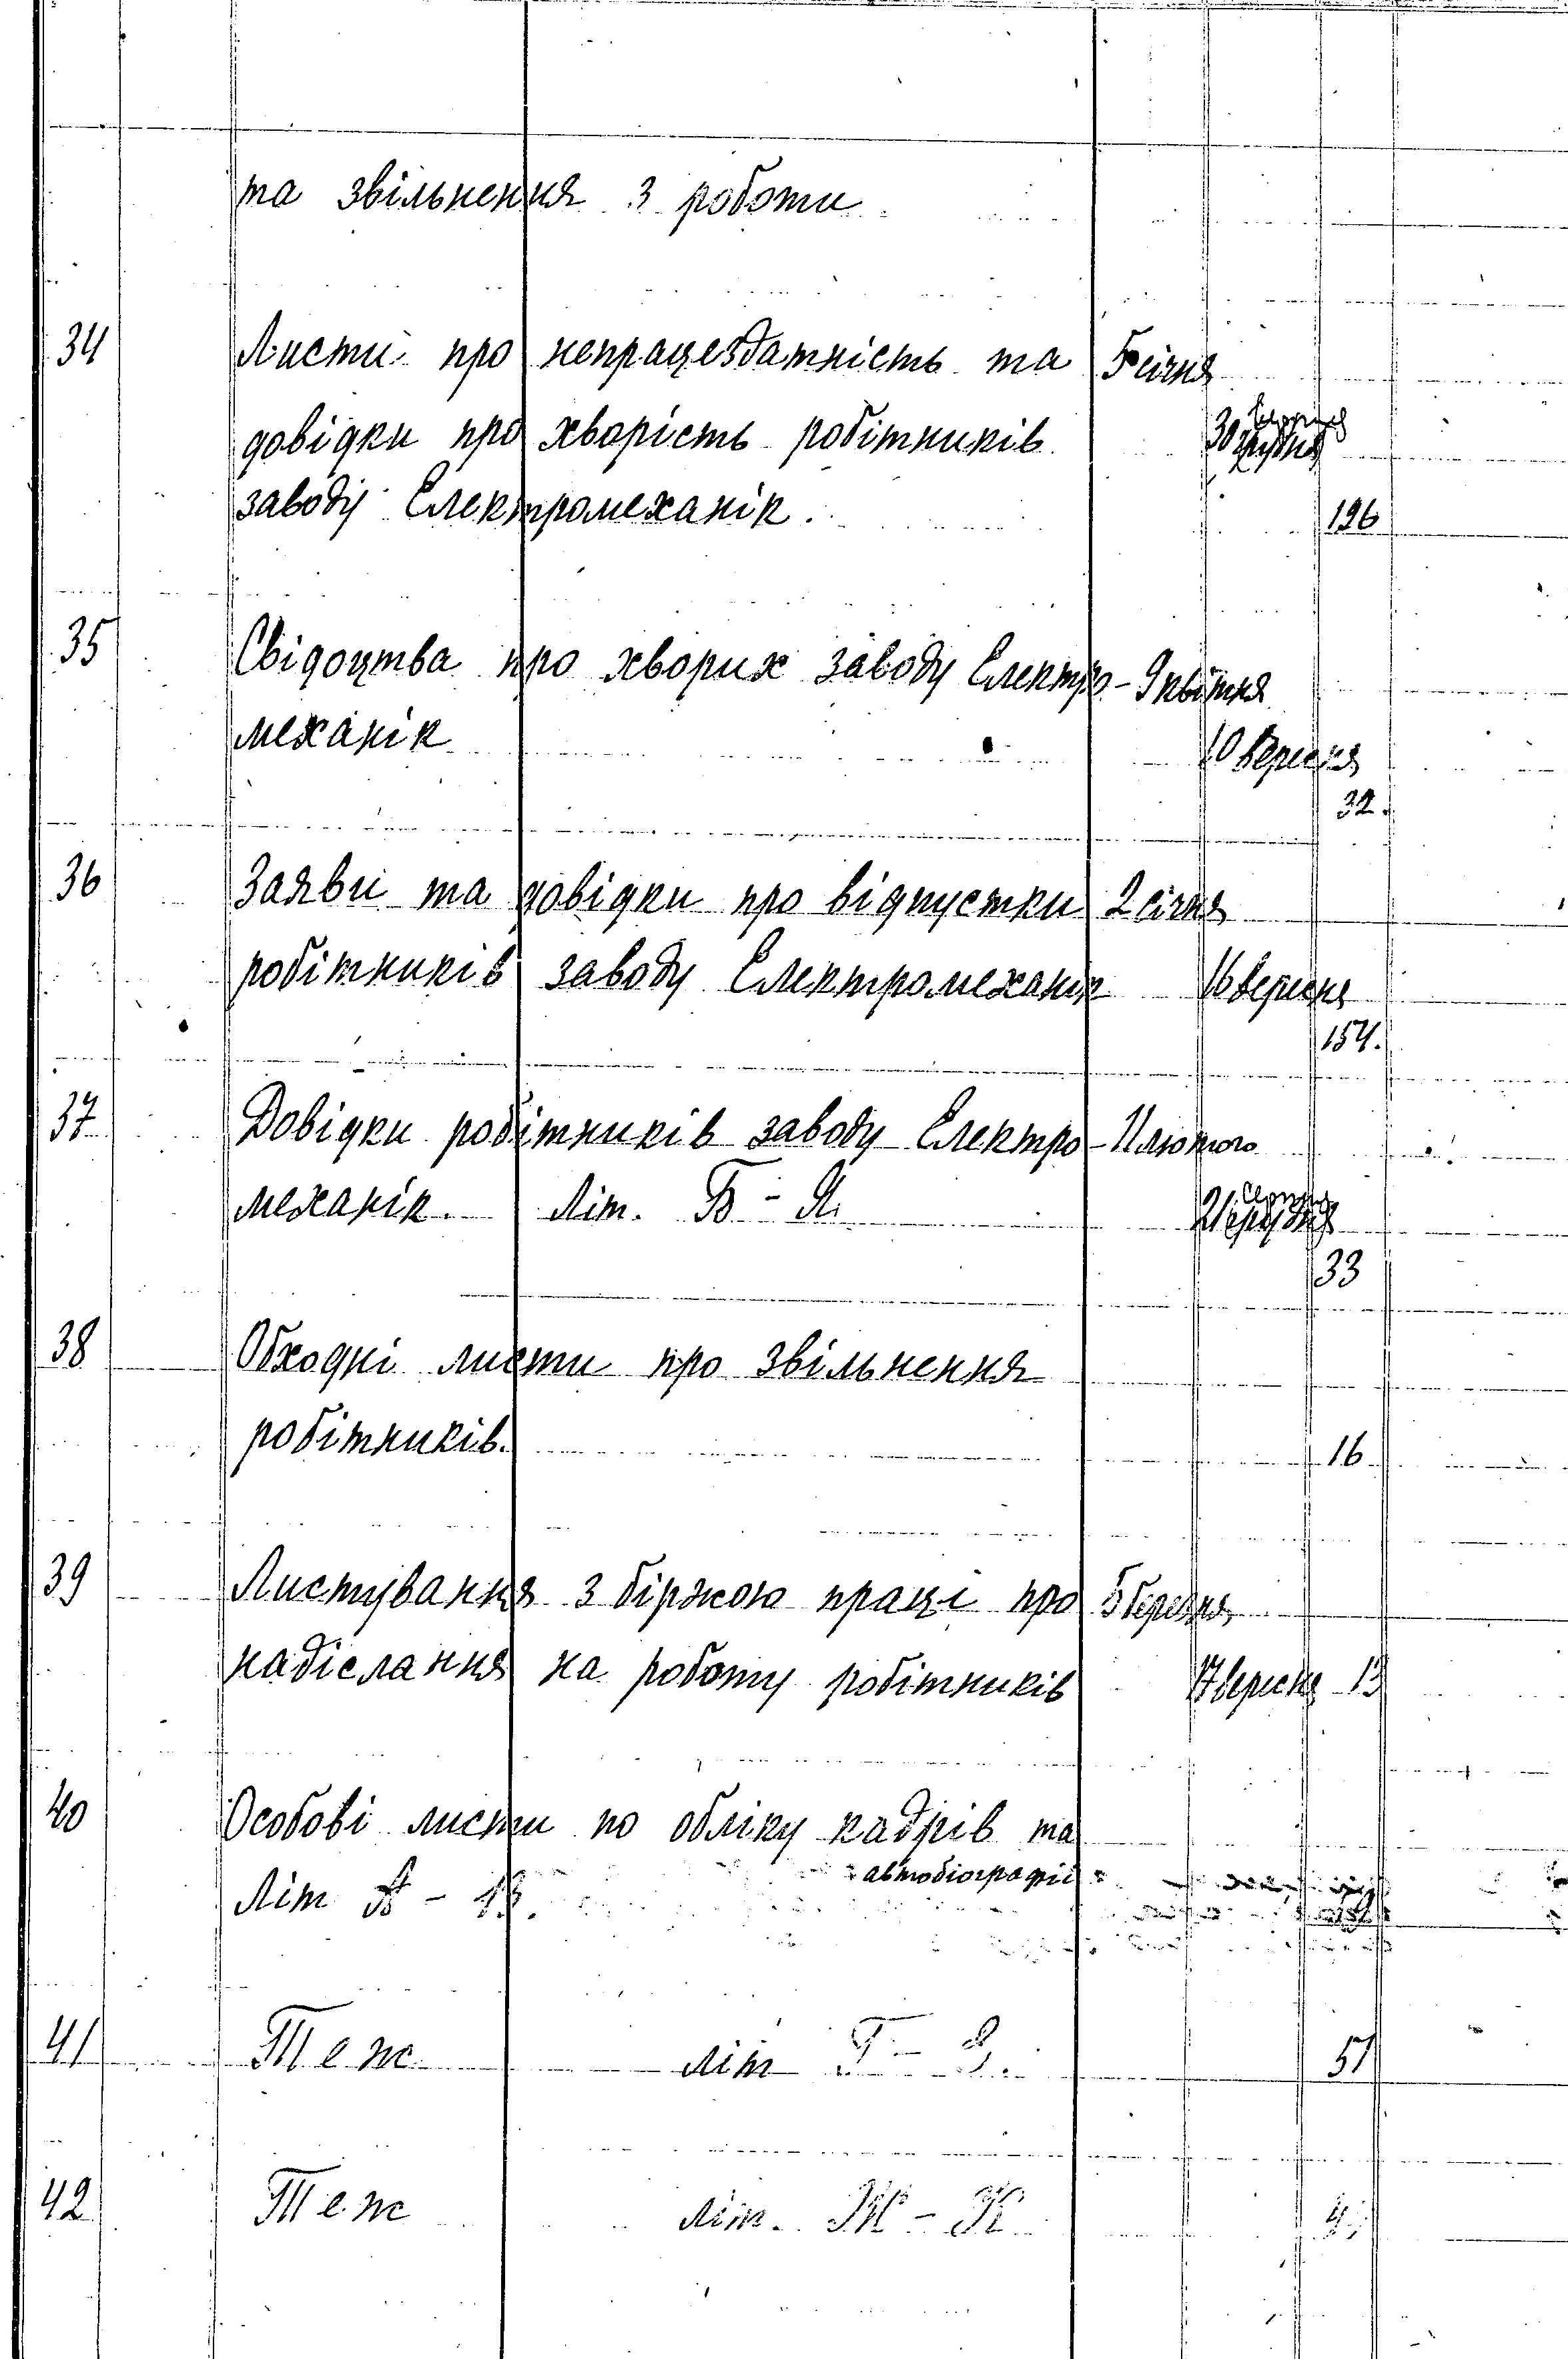 та звільнення з роботи
34 Листи про непрацездатність та 5 січня
довідки про хворість робітників 30
заводу Електромеханік.
126
35 Свідоцтва про хворих заводу Електро- 9 квітня
механік 10 вересня
32.
36 Заяви та довідки про відпустки 2 січня
робітників заводу Електромеханік 16 вересня
154.
37 Довідки робітників заводу Електро- 11 лютого
механік. Літ. Б - Я. 21
33
38 Обходні листи про звільнення
робітників. 16
39 Листування з біржою праці про 5 березня
надіслання на роботу робітників 17 вересня 13
40 Особові листи по обліку кадрів та
автобіографії
Літ А - В.
41 Теж літ Г - З. 51
42 Теж літ. Ж - К